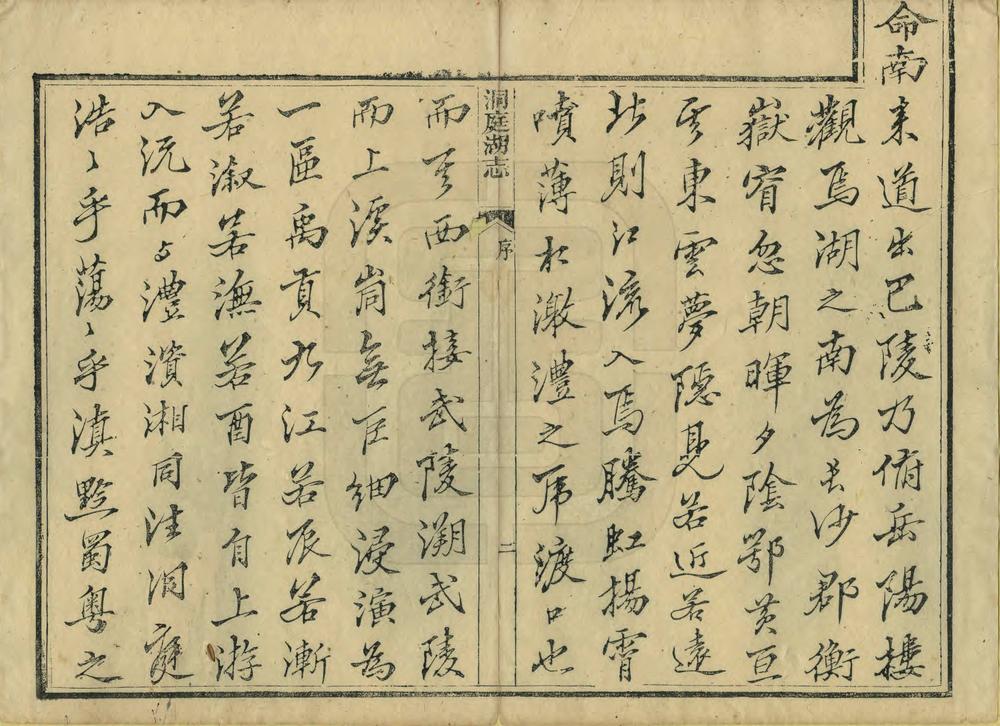 命南來道出巴陵乃俯岳陽樓
觀焉湖之南為長沙郡衡
嶽窅忽朝暉夕陰鄂黃亘
其東雲夢隱見若近若遠
北則江流入焉騰虹揚霄
噴薄於激澧之所渡口也
洞庭湖志 序 二
而其西銜接武陵溯武陵
而上溪峝無巨細浸演為
一區禹貢九江若辰若漸
若溆若潕若酉皆自上游
入沅而与澧澬湘同注洞庭
浩〻乎蕩〻乎滇黔蜀粵之